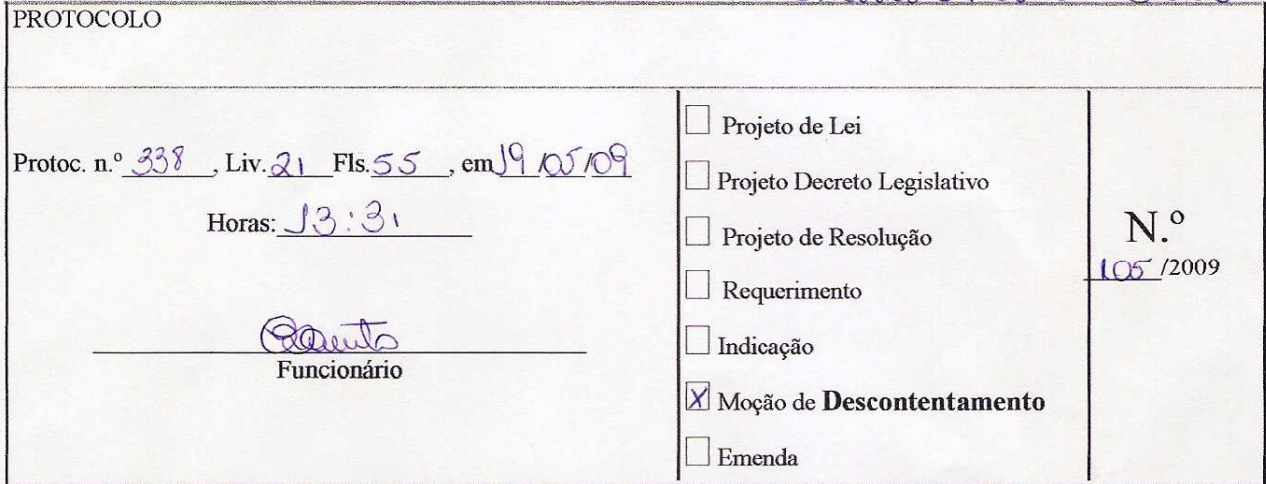 PROTOCOLO
Protoc. n.º 338, Liv. 21 Fls. 55, em 19/05/09
Horas: 13:31
Funcionário
Projeto de Lei
Projeto Decreto Legislativo
Projeto de Resolução
Requerimento
Indicação
X Moção de Descontentamento
Emenda
N.º
105/2009